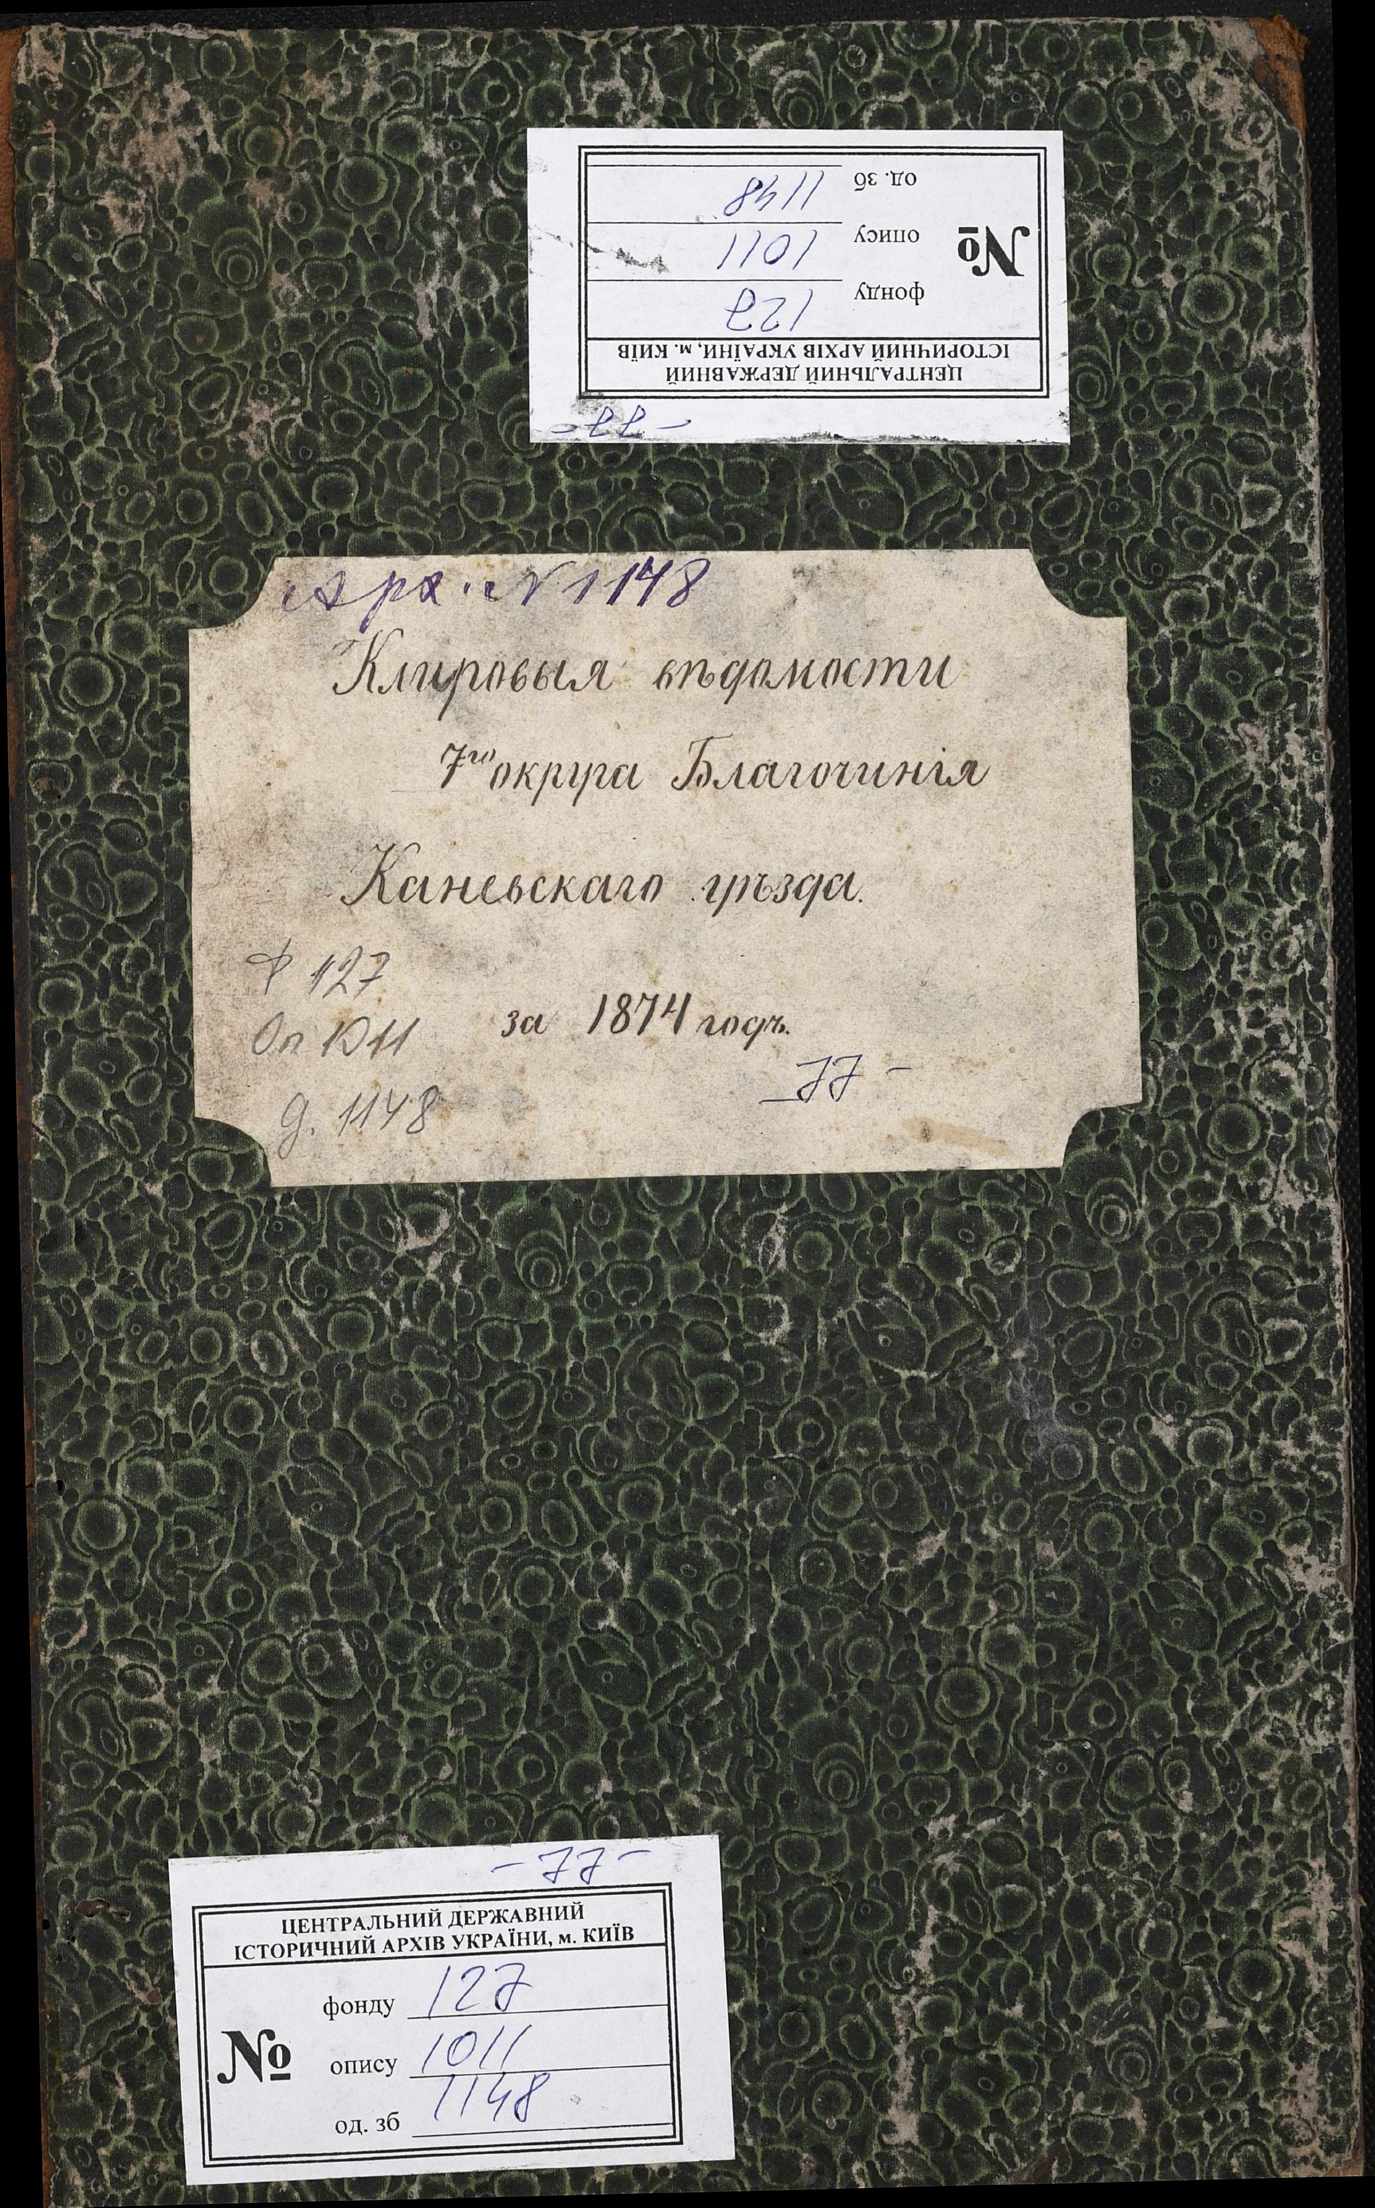 ЦЕНТРАЛЬНИЙ ДЕРЖАВНИЙ
ІСТОРИЧНИЙ АРХІВ УКРАЇНИ, м. КИЇВ
№
фонду 127
опису 1011
од. зб 1148
-77-
Арх. № 1148
Клировыя вѣдомости
7го округа Благочинія
Каневскаго уѣзда.
за 1874 годъ.
Ф 127
Оп 1011
д. 1148
-77-
-77-
ЦЕНТРАЛЬНИЙ ДЕРЖАВНИЙ
ІСТОРИЧНИЙ АРХІВ УКРАЇНИ, м. КИЇВ
№
фонду 127
опису 1011
од. зб 1148